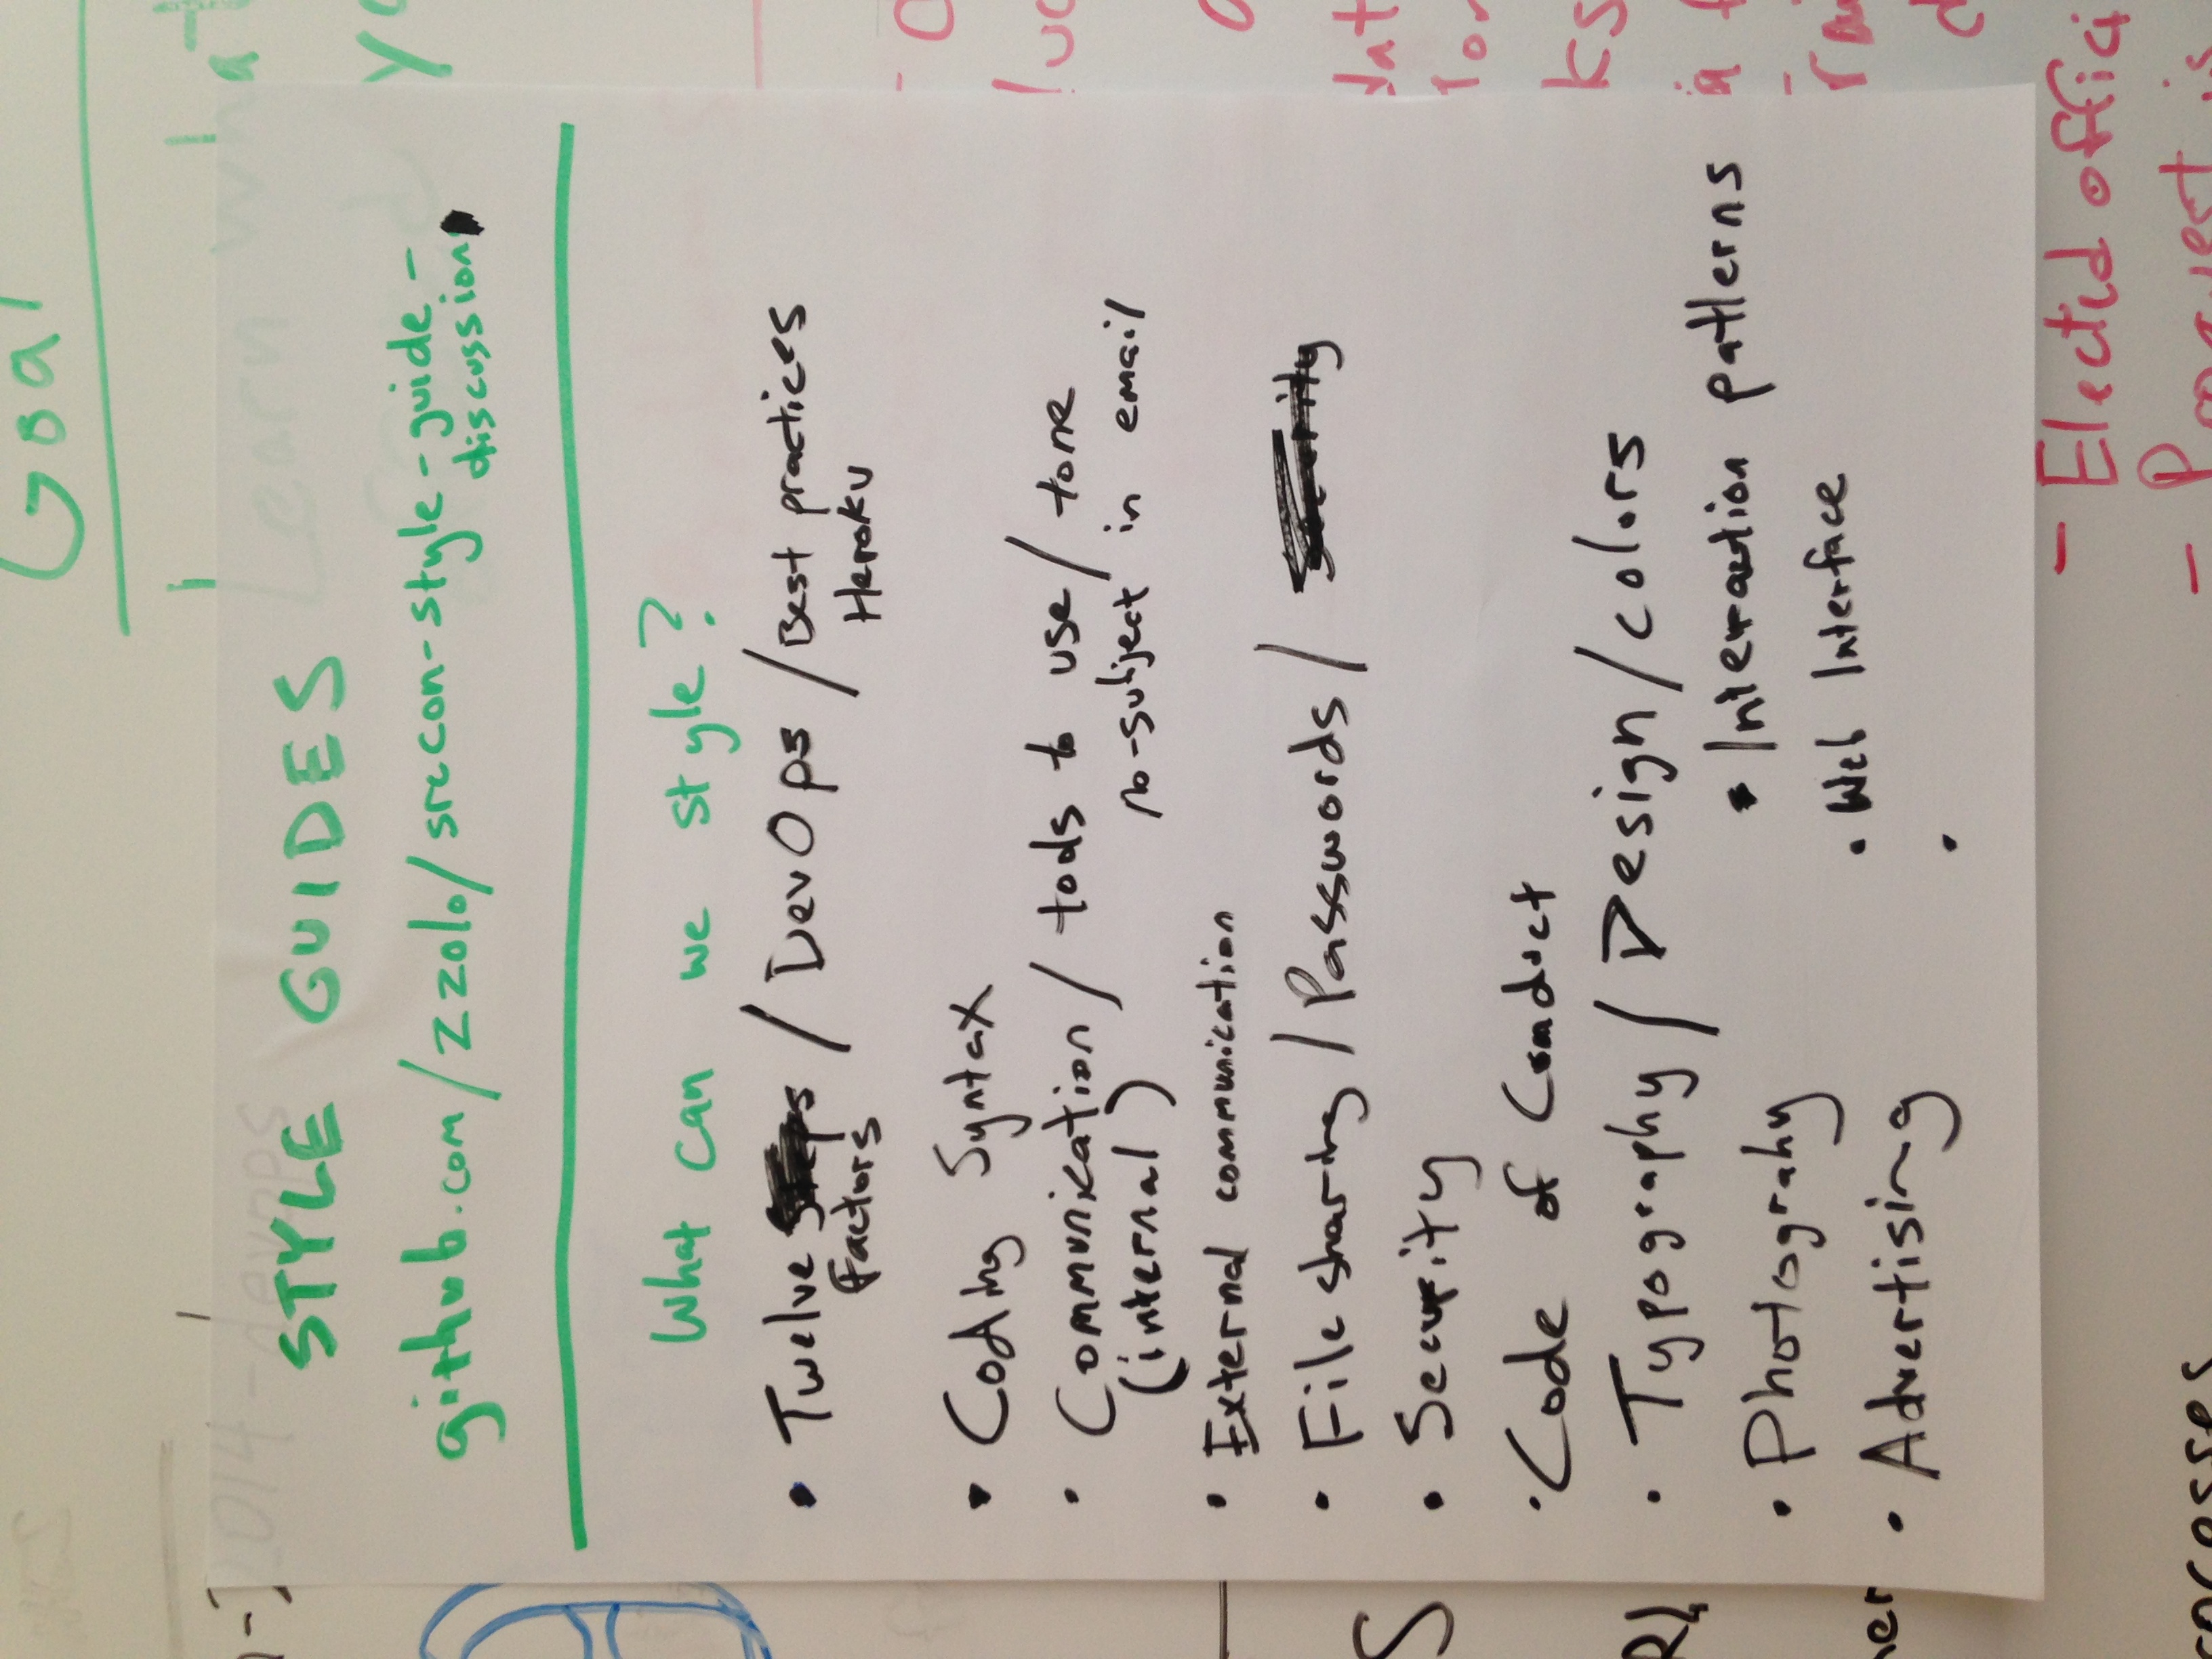 Goal
Learn what
2014-devops
STYLE GUIDES
github.com/zzolo/srccon-style-guide-
discussion
What can we style?
• Twelve Steps / DevOps / Best practices
Factors Heroku
• Coding Syntax
• Communication / tools to use / tone
(internal) no-subject in email
• External communication
• File sharing / Passwords / Security
• Security
• Code of Conduct
• Typography / Design / colors
• Interaction patterns
• Photograhy
• Web Interface
• Advertising
•
- Elected offici
- Proquest is
ocesses